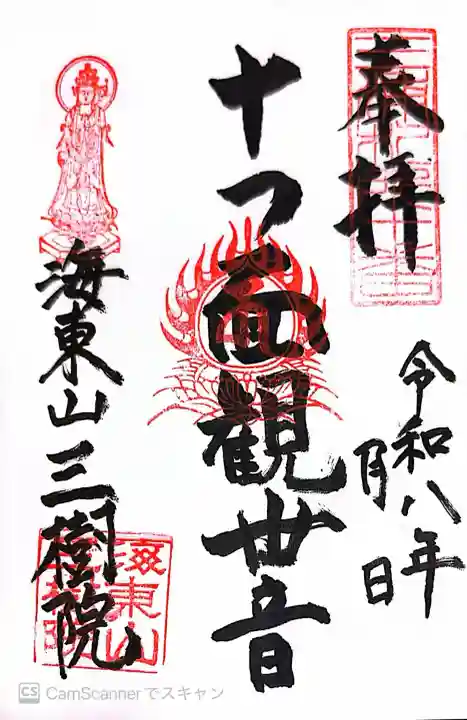 奉拝
令和八年
月 日
十一面観世音
海東山三樹院
海東山
三樹院
CS CamScannerでスキャン